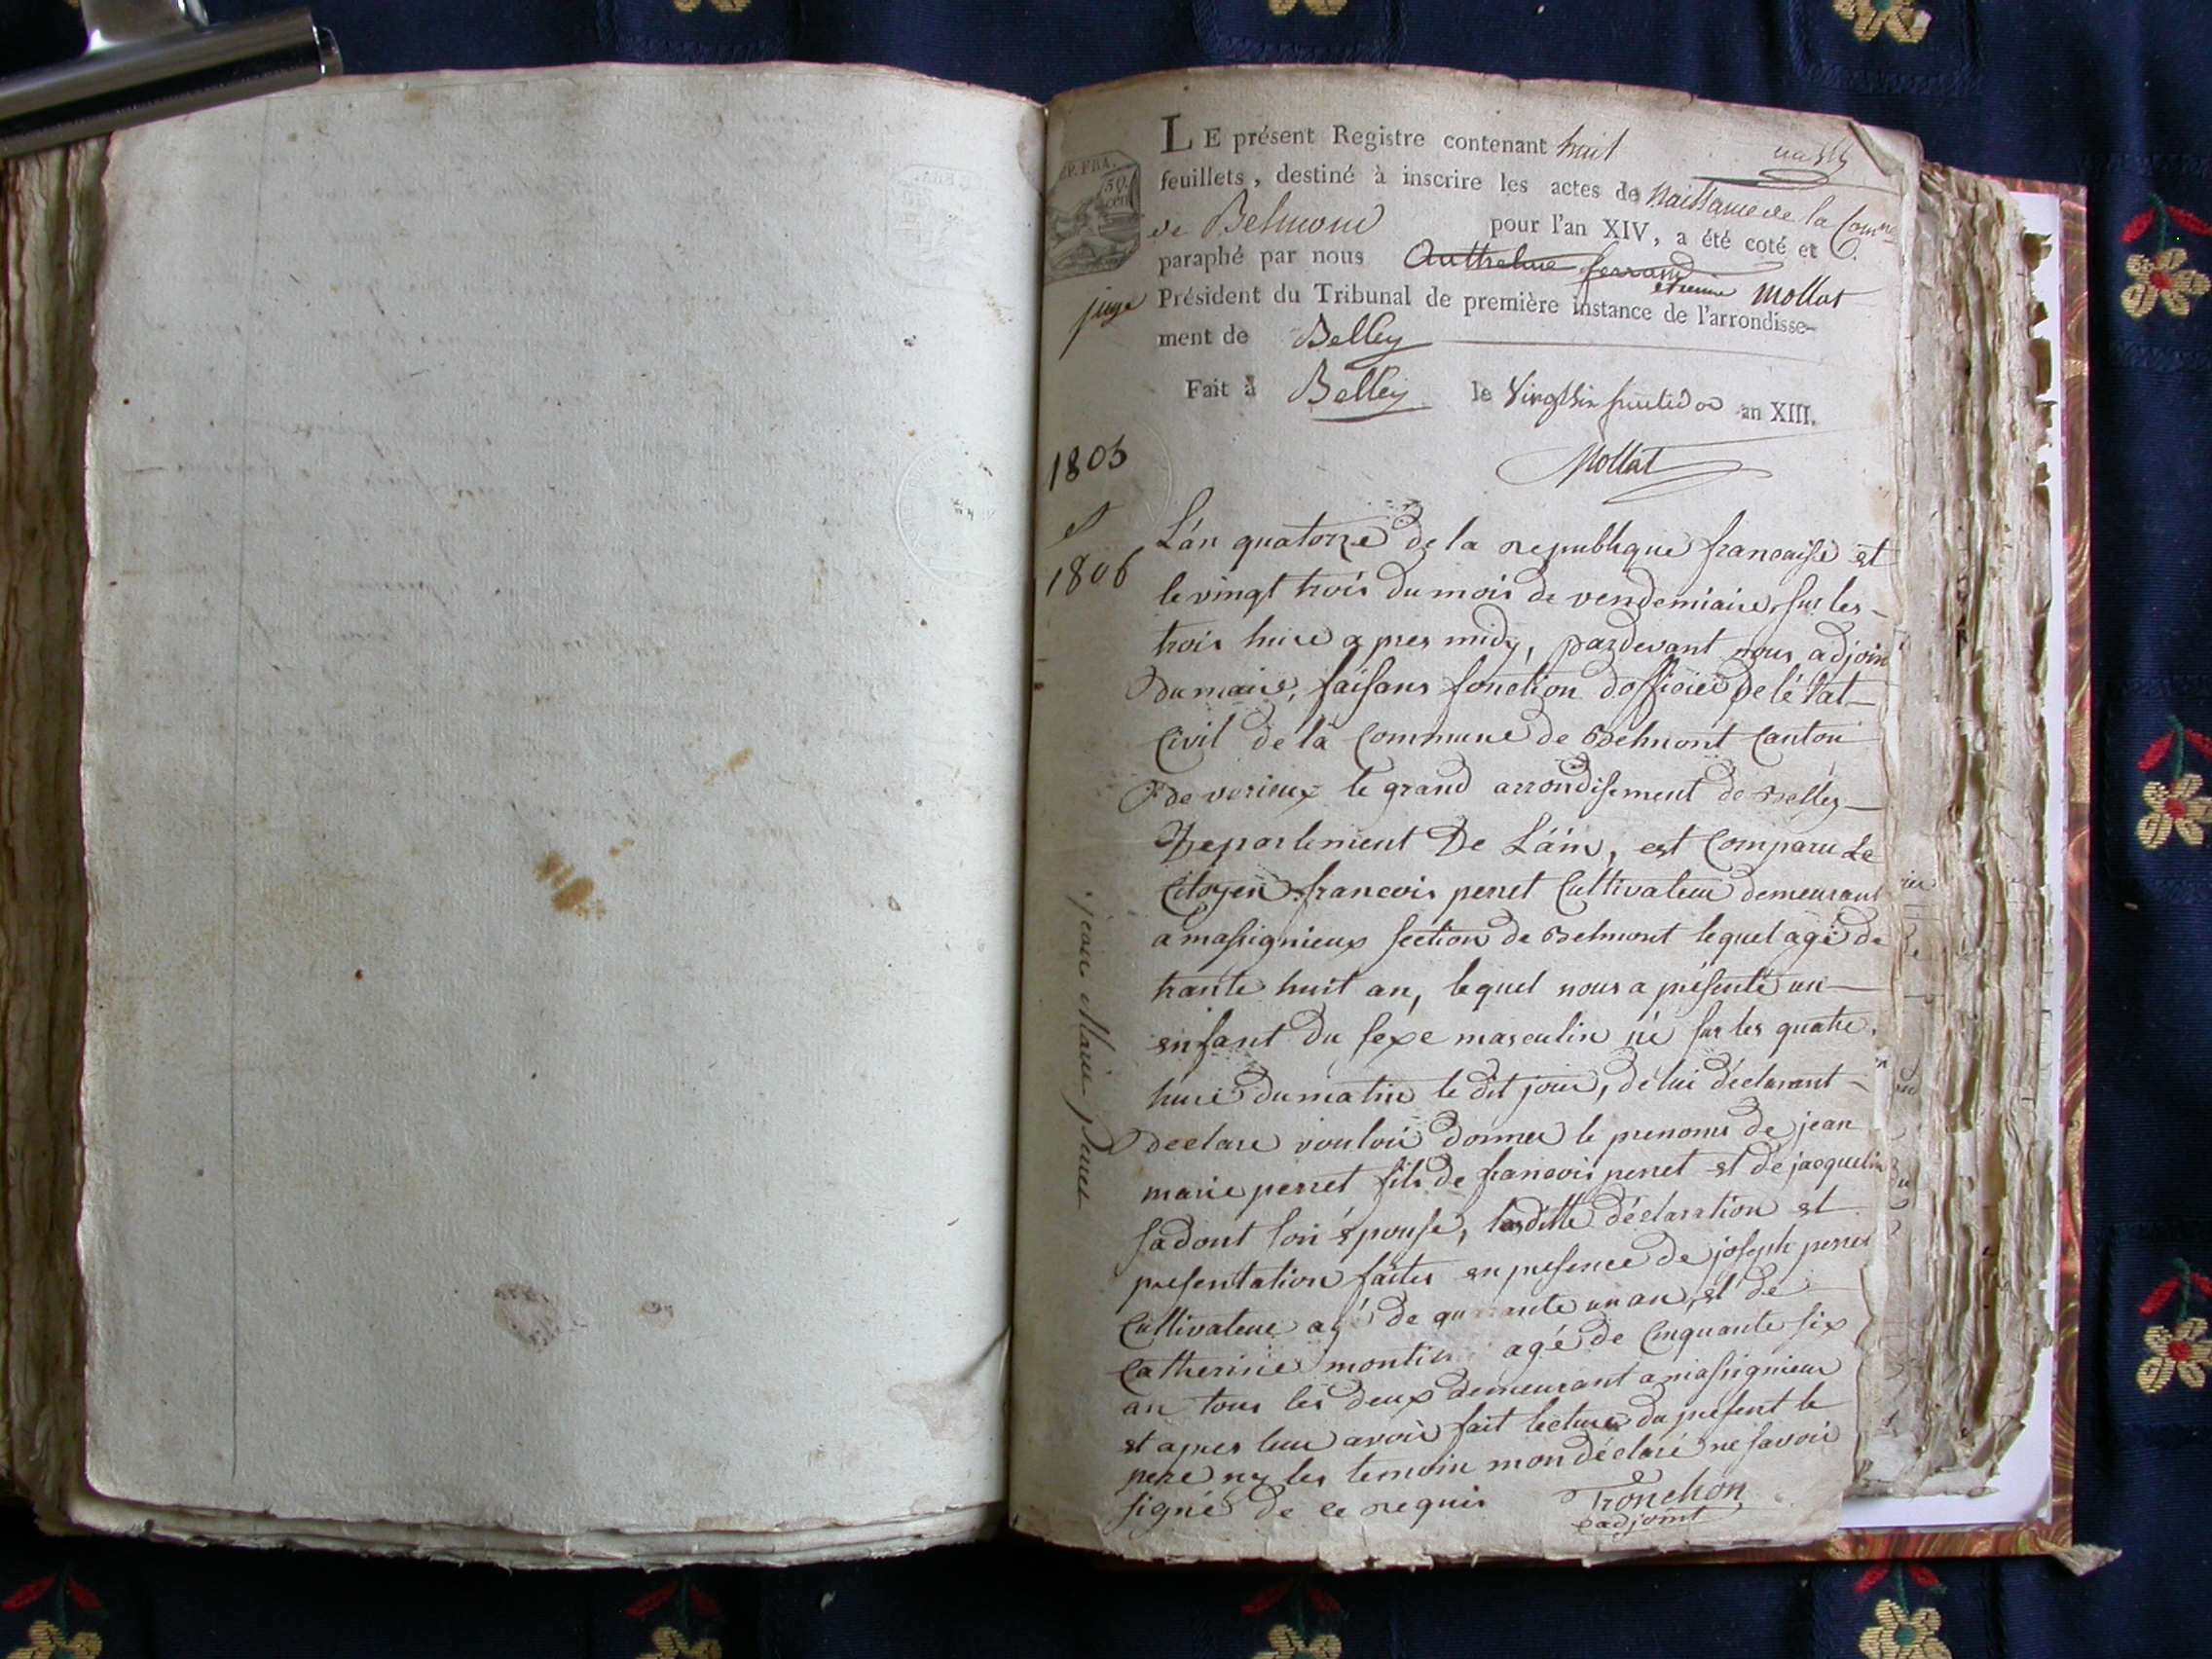 LE présent Registre contenant huit
feuillets, destiné à inscrire les actes de Naissance de la Comne
de Belmont pour l'an XIV, a été coté et
paraphé par nous Anthelme ferrand etienne Mollat
juge Président du Tribunal de première instance de l'arrondisse-
ment de Belley
Fait à Belley le Vingt six fructidor an XIII.
Mollat
1805
et
1806
L'an quatorze de la republique francaise et
le vingt trois du mois de vendemiaire, sur les
trois heure apres midy, pardevant nous adjoin
du maire, faisans fonction d'officier de l'état
Civil de la Commune de Belmont Canton
de virieux le grand arrondisement de Belley
Departement De L'ain, est Comparu Le
Citoyen francois perret Cultivateur demeurant
a massignieux section de Belmont lequel agé de
trante huit an, lequel nous a présenté un
enfant du sexe masculin né sur les quatre
heure du matin le dit jour, de lui déclarant
declare vouloir donner le prenoms de jean
marie perret fils de francois perret et de jacqueline
sadout son épouse, les ditte déclaration et
presentation faites en presence de joseph perret
Cultivateur agé de quarante un an, et de
Catherine agé de Cinquante six
an tous les deux demeurant a massignieux
et apres leur avoir fait lecture du présent le
pere ny les temoin mon déclaré ne savoir
signé de ce requis Tronchon
adjoint
jean Marie Perret
RÉP. FRA.
50
cen